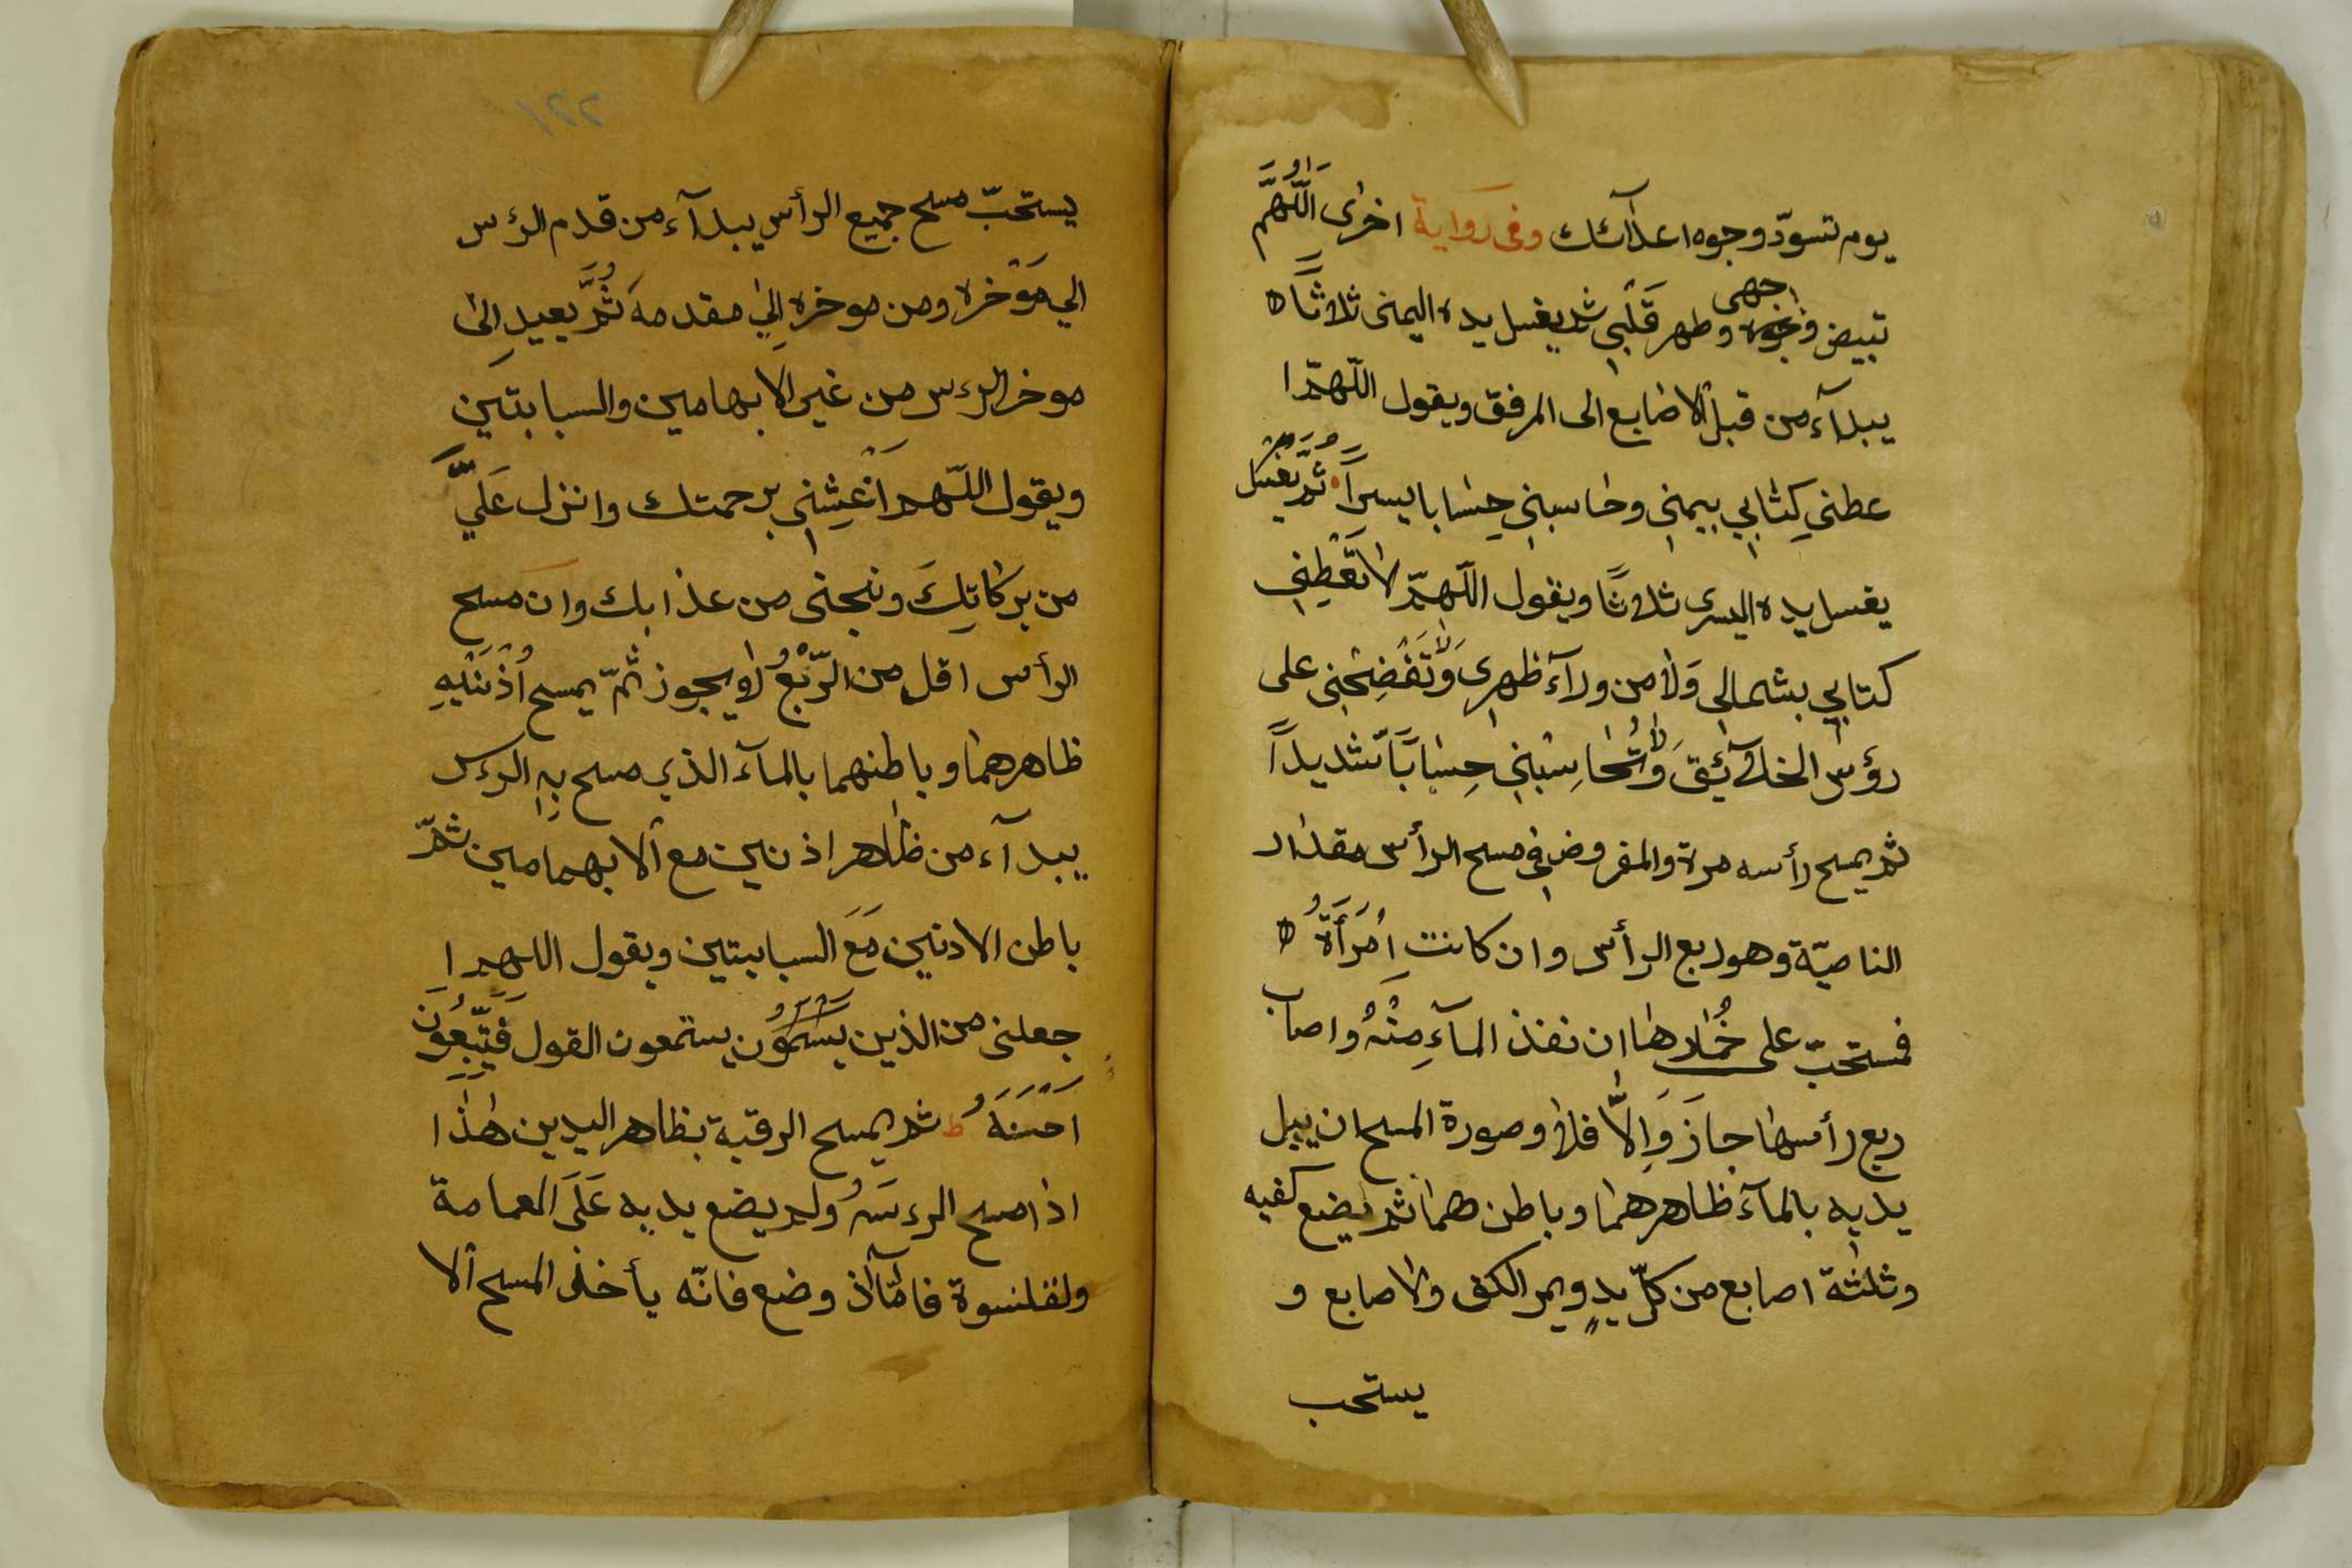 يوم تسودّ وجوه اعدآئك وفى رواية اخرٰى اَللّٰهُمَّ
تبيض وجهى وطهر قَلْبِي ثم يغسل يده اليمنى ثلاثًا ه
يبدآء من قبل الاصٰابع الى المرفق ويقول اللّهمّ ا
عطني كِتٰابِي بيمني وحٰاسبني حِسٰابا يسيراً ثُمَّ يغسل
يغسل يده اليسرى ثلاثًا ويقول اللّهمّ لا تُعْطِنِي
كتابي بشمالى وَلٰا من ورآء ظهرى وَلَا تَفْضِحْنِى على
رؤس الخلآئِقَ وَلَا تُحٰاسِبْنِي حِسٰابًا شديداً
ثم يمسح رأسه مرة والمفروض في مسح الرأس مقدٰار
الناصيّة وهو ربع الرأس وان كانت اِمْرَأَةُ ه
فمستحبّ على خُمٰارهٰا ان نفذ المآءِ مِنْهُ واصاب
ربع رأسهٰا جٰازَ وَاِلَّا فلٰا وصورة المسح ان يبل
يديه بالمآء ظاهرهمٰا وباطن همٰا ثم يضع كفيه
وثلثة اصابع من كلّ يدٍ ويمر الكف والاصابع و
يستحب
٢٢١
يستحبّ مسح جميع الرأس يبدآء من قدم الرٔس
الي مَوْخره ومن موخره اِلٰي مقدمه ثُمَّ يعيد الى
موخر الرءس من غير الابهامين والسبابتين
ويقول اللّهم اَغْشِنِي برحمتك وانزل عَلَيَّ
من بركٰاتِكَ ونجنى من عذابك وان مسح
الرأس اقل من الرّبْعُ لٰا يجوز ثمّ يمسح اُذْنَيْهِ
ظاهرهمٰا وباطنهما بالمآء الذي مسح بِهِ الرءس
يبدآء من ظٰاهر اذنين مع الابهمامين ثمّ
باطن الادنين مَعَ السبابيتين ويقول اللهم ا
جعلنى من الذين يستمعون القول فَتَّبِعُونَ
اَحْسَنَهُ ط ثم يمسح الرقبة بظاهر اليدين هٰذَا
اذا مسح الرءسَهُ ولم يضع يديه عَلَى العمامة
ولقلنسوة فامّآ اذ وضع فانّه يأخذ المسح الا